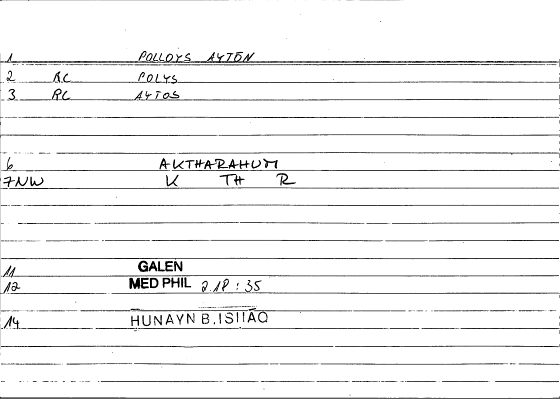 1 POLLOYS AYTŌN
2 RC POLYS
3 RC AYTOS
6 AKTHARAHUM
7NW K TH R
11 GALEN
12 MED PHIL 2.18 : 35
14 HUNAYN B. ISHAQ